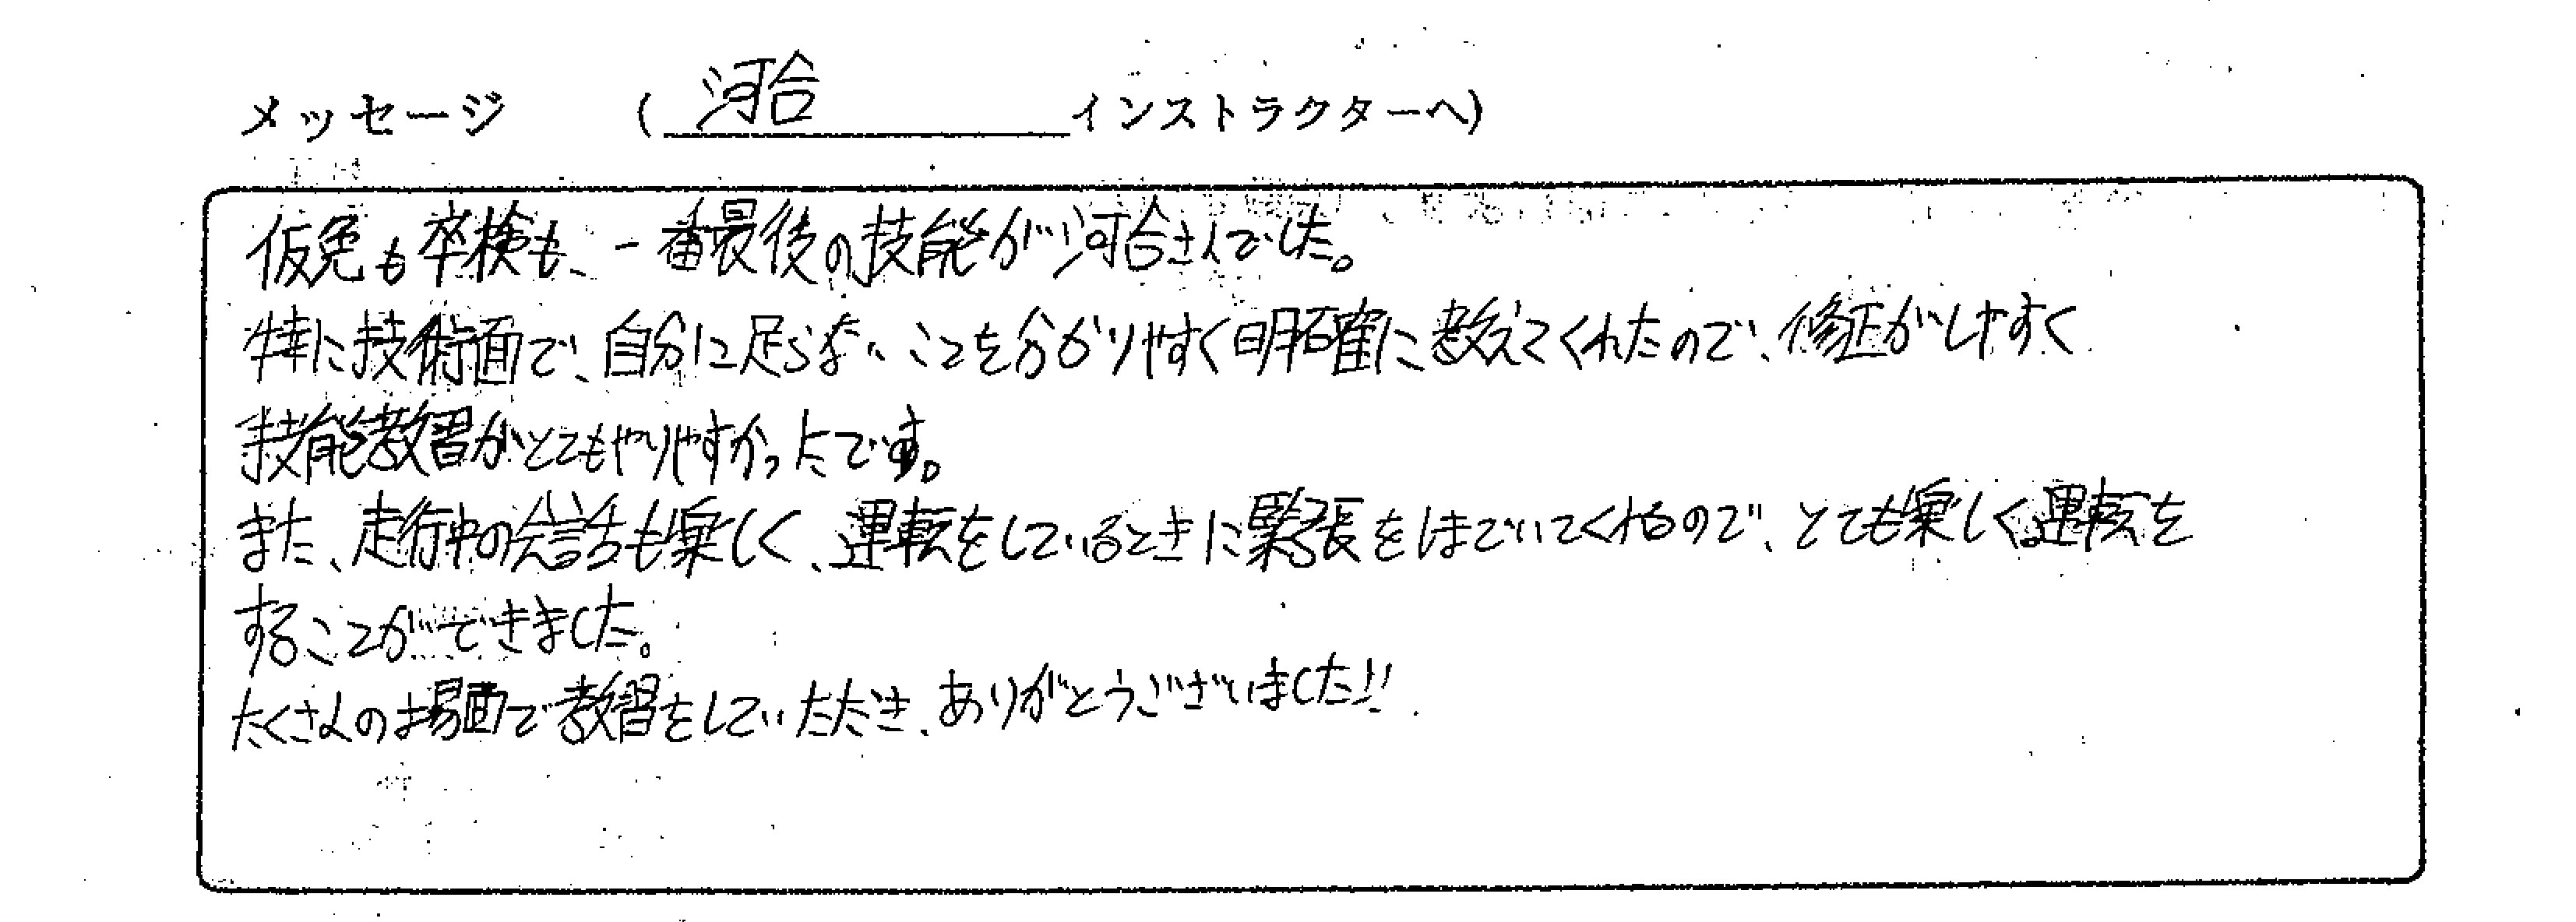 メッセージ (河合 インストラクターへ)
仮免も卒検も、一番最後の技能が河合さんでした。
特に技術面で、自分に足らないことを分かりやすく明確に教えてくれたので、修正がしやすく
技能教習がとてもやりやすかったです。
また、走行中の会話も楽しく、運転をしているときに緊張をほでいてくれるので、とても楽しく運転を
することができました。
たくさんの場面で教習をしていただき、ありがとうございました!!